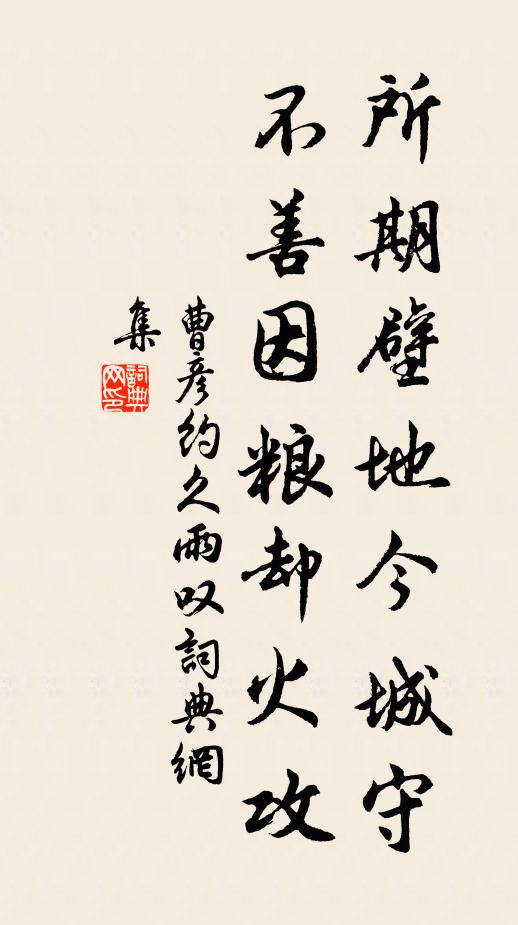 所期壁地今城守
不善因粮却火攻
曹彦约久雨叹詞典網
集
詞典
网印